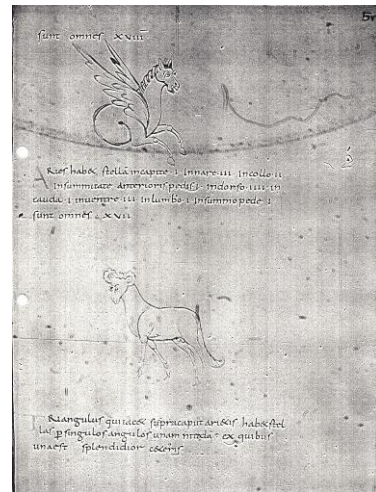 5r
sunt omnes xviii
Aries habet stella in capite · i · innare · iii · incollo · ii
insummitate anterioris pedis · i · indorso · iiii · in
cauda · i · inventre · iii · inlumbo · i · insummo pede · i
sunt omnes xvii
Riangulus qui iacet supra caput arietis habet stel
las p singulos angulos unam ex quibus
una est splendidior ceteris